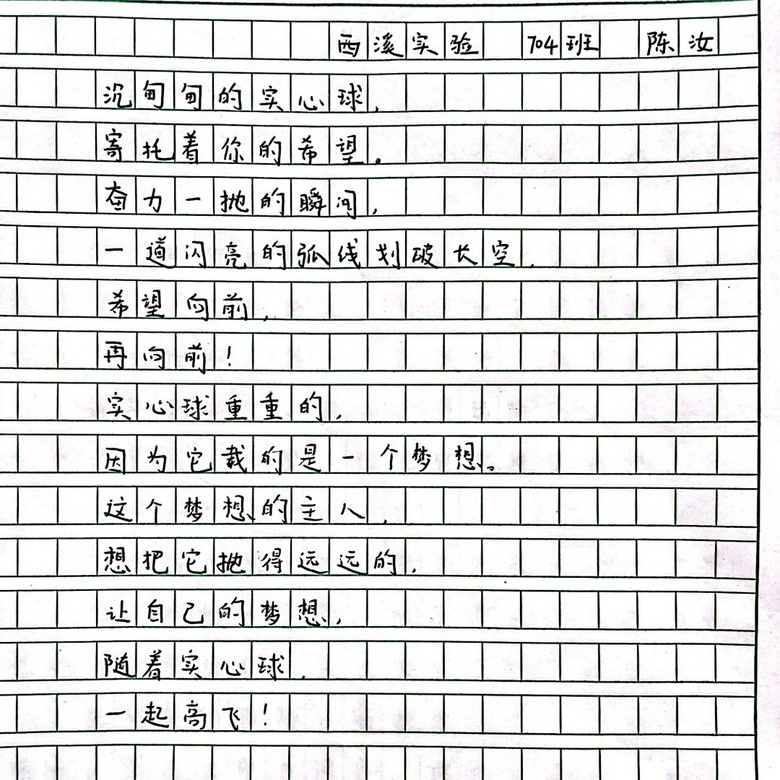 西溪实验 704班 陈汝
沉甸甸的实心球,
寄托着你的希望。
奋力一抛的瞬间,
一道闪亮的弧线划破长空,
希望向前,
再向前!
实心球重重的,
因为它载的是一个梦想。
这个梦想的主人,
想把它抛得远远的,
让自己的梦想,
随着实心球,
一起高飞!